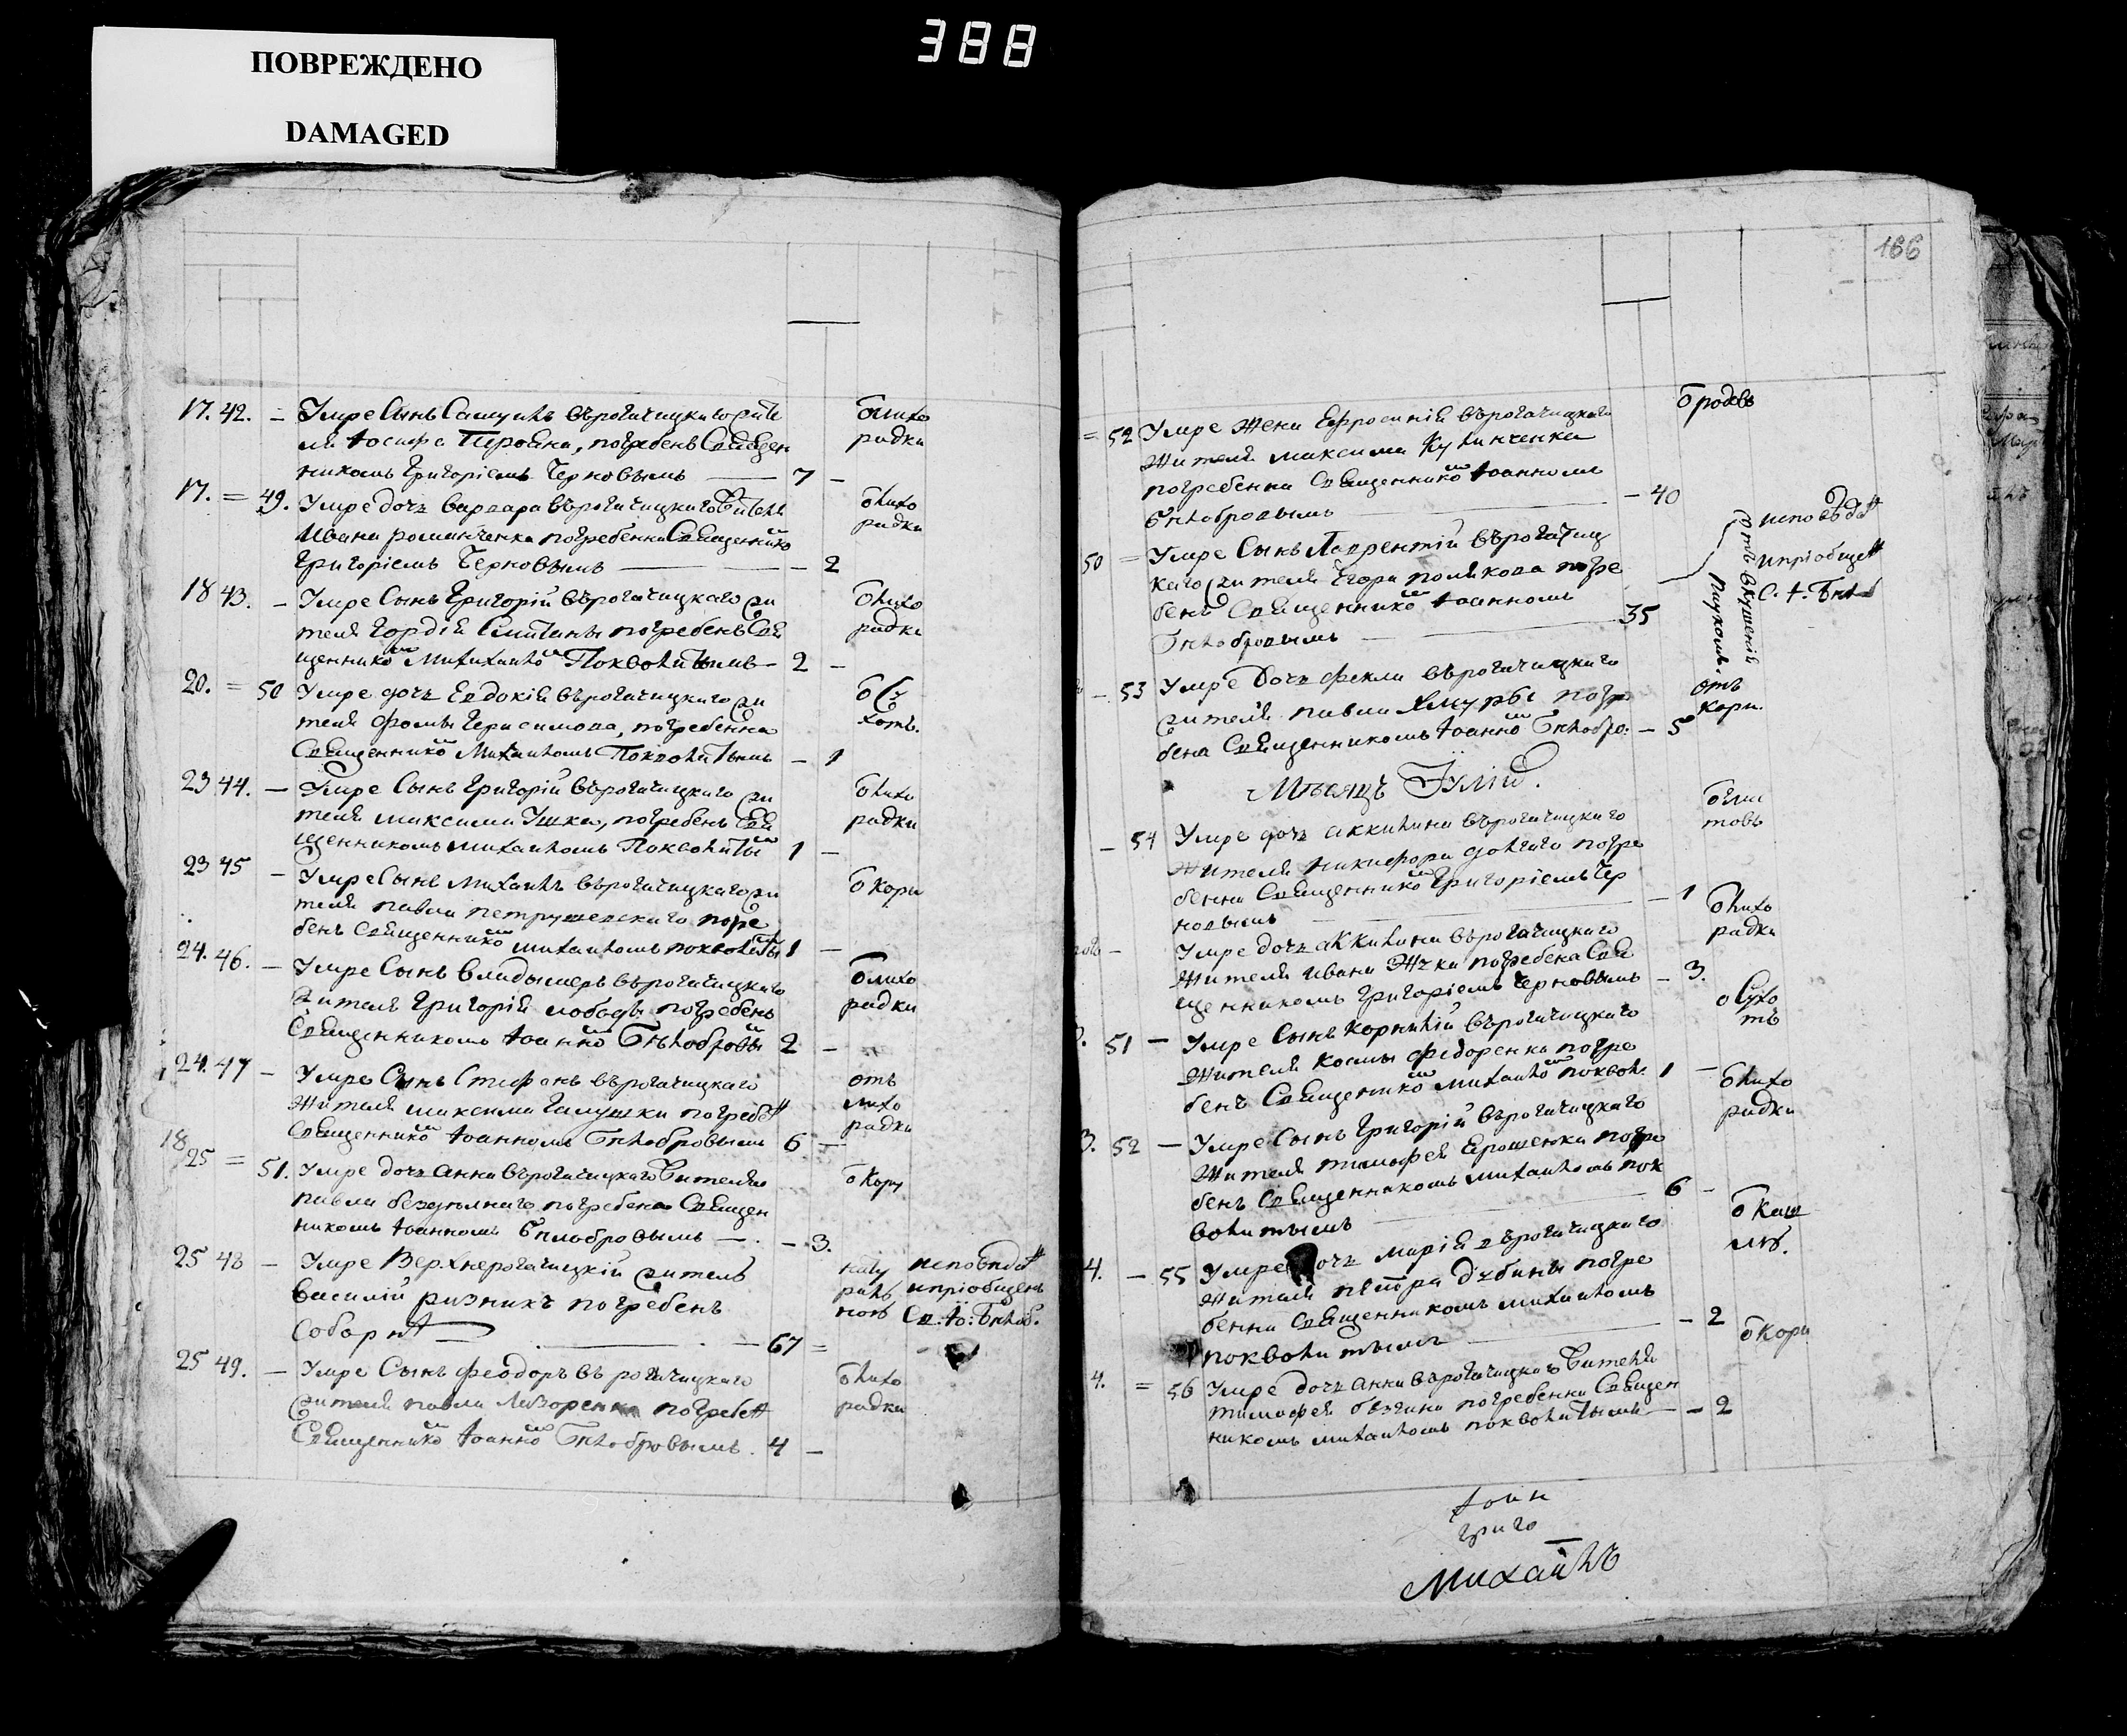 ПОВРЕЖДЕНО
DAMAGED
388
17. 42. – Умре Сынъ Самуилъ върогачицкаго жите
ля Іосифа, погребенъ Священ
никомъ Григоріемъ Черновымъ — 7 –
о лихо
радки
17. = 49. Умре дочь варвара върогачицкаго жителя
Ивана романченка погребенна Священнико
Григоріемъ Черновымъ — – 2
о лихо
радки
18 43. – Умре Сынъ Григорій върогачицкаго жи
теля Гордія погребенъ Свя
щеннико Михаило Покволитымъ – 2 –
о лихо
радки
20. = 50 Умре дочь Евдокія върогачицкаго жи
теля фомы Герасимова, погребенна
Священнико Михаиломъ Покволитымъ – 1
о Су
хотъ.
23 44. – Умре Сынъ Григорій върогачицкаго жи
теля максима Ушка, погребенъ Свя
щенникомъ михаиломъ Покволиты 1 –
о лихо
радки
23 45 – Умре Сынъ Михаилъ върогачицкаго жи
теля павла петрушевскаго погре
бенъ Священнико михаиломъ покволиты 1 –
о кори
24. 46. – Умре Сынъ владымеръ върогачицкаго
жителя Григорія лободы погребенъ
Священникомъ Іоанно Бѣлобровы 2 –
о лихо
радки
24. 47 – Умре Сынъ Стефанъ върогачицкаго
жителя максима Галушки погребен
Священнико Іоанномъ Бѣлобровымъ 6 –
отъ
лихо
радки
18
25 = 51. Умре дочь анна върогачицкаго жителя
павла погребена Священ
никомъ Іоанномъ Бѣлобровымъ — – 3.
о Кору
25 48 – Умре Верхнерогачицкій житель
василій ризникъ погребенъ
Соборнѣ — 67 =
нату
рал
ною
исповѣдан
и пріобщенъ
Св. Іо: Бѣлоб.
25 49. – Умре Сынъ феодоръ въ рогачицкаго
жителя павла погребен
Священнико Іоанно Бѣлобровымъ. 4 –
о лихо
радки
166
= 52 Умре жена Ефросинія върогачицкаго
жителя максима
погребенна Священнико Іоанномъ
Бѣлобровымъ — – 40
о родовъ
50 = Умре Сынъ Лаврентій върогачиц
каго жителя Егора полякова погре
бенъ Священнико Іоанномъ
Бѣлобровымъ — 35
отъ вкушенія
исповѣдан
и пріобщен
– 53 Умре Дочь фекла върогачицкаго
жителя павла погре
бена Священникомъ Іоанно Бѣлобро. – 5
отъ
кори.
Мѣсяцъ Іулій.
– 54 Умре дочь аккилина върогачицкаго
жителя никифора долгаго погре
бенна Священнико Григоріемъ Чер
новымъ — – 1
о гли
товъ
– Умре дочь аккилина върогачицкаго
жителя ивана погребена Свя
щенникомъ Григоріемъ Черновымъ – 3.
о лихо
радки
51 – Умре Сынъ корнилій върогачицкаго
жителя космы федоренка погре
бенъ Священнико михаило поквол 1 –
о Сухо
тъ
3. 52 – Умре Сынъ Григорій върогачицкаго
жителя тимофея Ерошенка погре
бенъ Священникомъ михаиломъ пок
волитымъ — 6 –
о лихо
радки
4. – 55 Умре дочь марія върогачицкаго
жителя петра дубины погре
бенна Священникомъ михаиломъ
покволитымъ — – 2
о каш
лю.
4. = 56 Умре дочь анна върогачицкаго жителя
тимофея погребенна Священ
никомъ михаиломъ покволитымъ – 2
о кори
Іоан
григо
Михаилъ